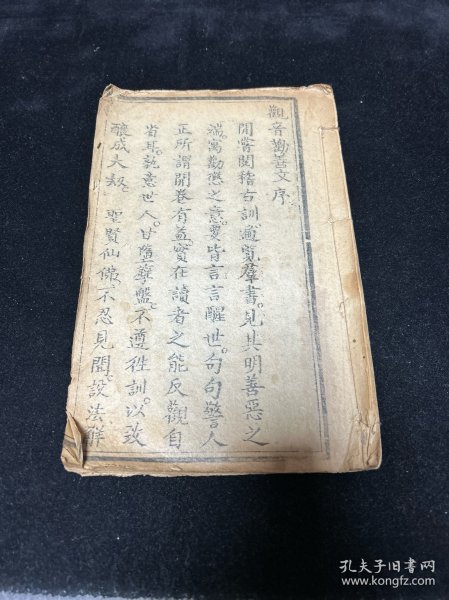 觀音勸善文序
閒嘗閱稽古訓遍覽羣書見其明善惡之
端寓勸懲之意要皆言言醒世句句警人
正所謂開卷有益實在讀者之能反觀自
省耳孰意世人甘墮孽盤不遵徃訓以致
釀成大劫 聖賢仙佛不忍見聞設法解
孔夫子旧书网
www.kongfz.com